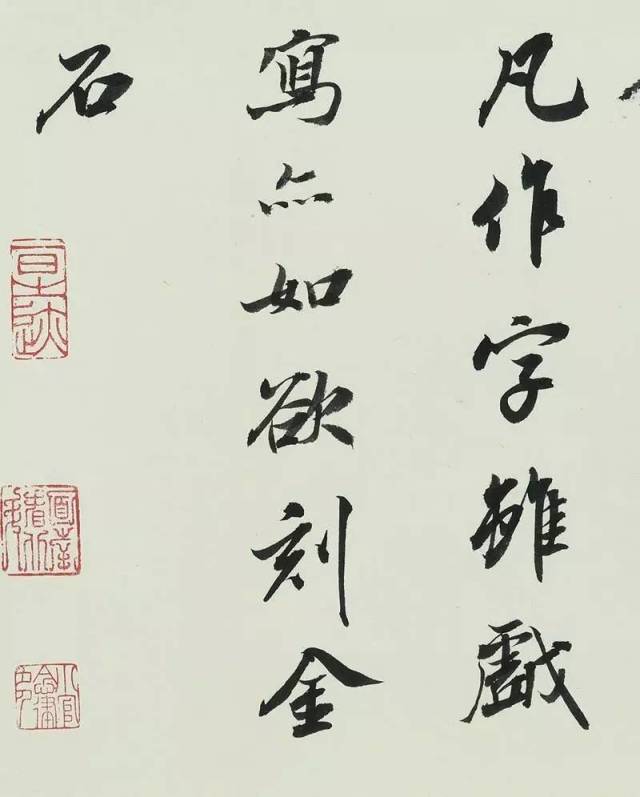 凡作字雖戲
寫亦如欲刻金
石